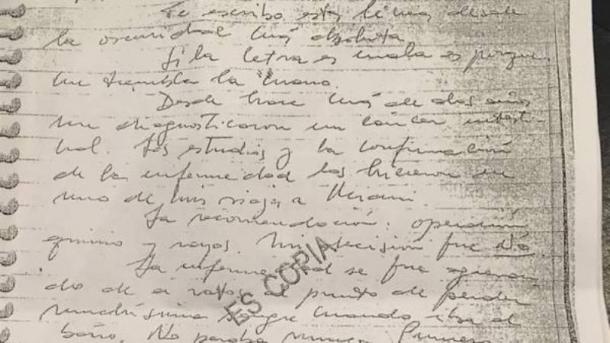 Te escribo estas líneas desde
la oscuridad más absoluta
Si la letra es mala es porque
me tiembla la mano.
Desde hace más de dos años
me diagnosticaron un cáncer intesti-
nal. Los estudios y la confirmación
de la enfermedad los hicieron en
uno de mis viajes a Miami.
La recomendación: operación
quimio y rayos. Mi decisión fue No.
La enfermedad se fue agravan
do de a ratos al punto de perder
muchísima sangre cuando iba al
baño. No paraba nunca. Primero
ES COPIA